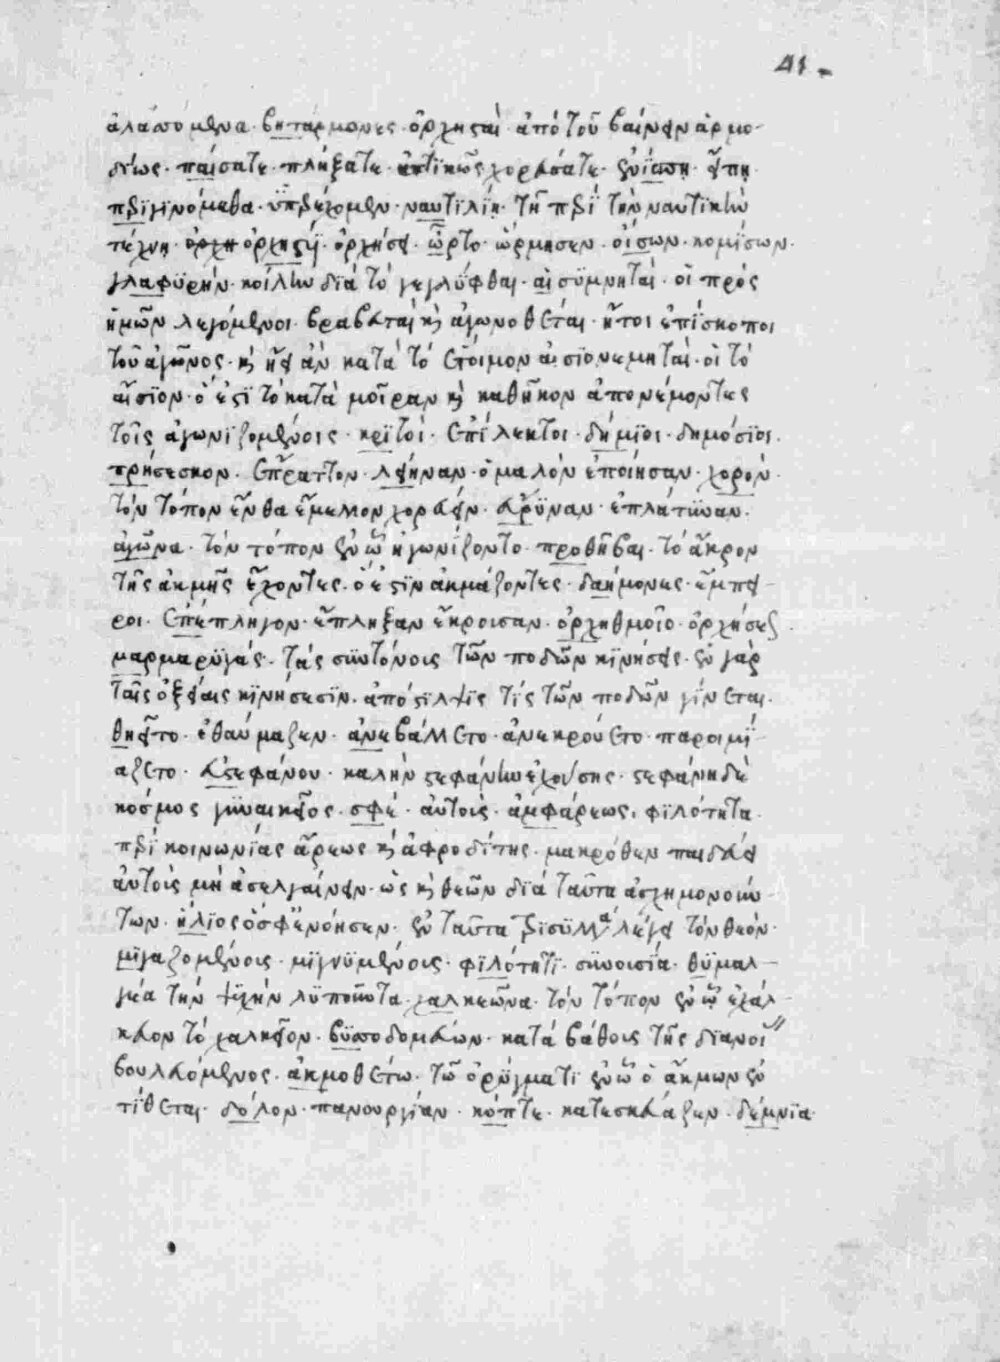 41 -
ἀλαπόμενα · βητάρμονες · ὀρχησταὶ ἀπὸ τοῦ βαίνειν ἁρμο-
δίως · παίσατε · πλήξατε · ἀττικῶς χορεύσατε · ἐνίσπῃ · εἴπῃ ·
περιγινόμεθα · ὑπερέχομεν · ναυτιλίῃ · τῇ περὶ τὴν ναυτικὴν
τέχνῃ · ὀρχηστύϊ · ὀρχήσει · ὦρτο · ὥρμησεν · οἴσων · κομίσων ·
γλαφυρήν · κοίλην διὰ τὸ γεγλύφθαι · αἰσυμνῆται · οἱ πρὸς
ἡμῶν λεγόμενοι · βραβευταὶ καὶ ἀγωνοθέται · ἤτοι ἐπίσκοποι
τοῦ ἀγῶνος · καὶ εἶεν ἂν κατὰ τὸ ἔτοιμον αἰσιονεμηταὶ · οἱ τὸ
αἴσιον · ὅ ἐστι τὸ κατὰ μοῖραν καὶ καθῆκον ἀπονέμοντες
τοῖς ἀγωνιζομένοις · κριτοὶ · ἐπίλεκτοι · δήμιοι · δημόσιοι ·
πρήσσεσκον · ἔπραττον · λείηναν · ὁμαλὸν ἐποίησαν · χορὸν ·
τὸν τόπον ἔνθα ἔμελλον χορεύειν · εὔρυναν · ἐπλάτυναν ·
ἀγῶνα · τὸν τόπον ἐν ᾧ ἠγωνίζοντο · πρωθῆβαι · τὸ ἄκρον
τῆς ἀκμῆς ἔχοντες · ὅ ἐστιν ἀκμάζοντες · δαήμονες · ἔμπει-
ροι · ἐπέπληγον · ἔπληξαν ἔκροισαν · ὀρχηθμοῖο · ὀρχήσεως ·
μαρμαρυγάς · τὰς συντόνοις τῶν ποδῶν κινήσεις · ἐν γὰρ
ταῖς ὀξείαις κινήσεσιν · ἀπόστιλψις τίς τῶν ποδῶν γίνεται ·
θηεῖτο · ἐθαύμαζεν · ἀνεβάλλετο · ἀνεκρούετο · παροιμι-
άζετο · εὐστεφάνου · καλὴν στεφάνην ἐχούσης · στεφάνη δὲ
κόσμος γυναικεῖος · σφέ · αὐτοὺς · ἀμφ' ἄρεως · φιλότητα ·
περὶ κοινωνίας ἄρεως καὶ ἀφροδίτης · μακρόθεν παιδεύει
αὐτοὺς μὴ ἀσελγαίνειν · ὡς καὶ θεῶν διὰ ταῦτα ἀσχημονούν-
των · ἥλιος ὅ σφ' ἐνόησεν · ἐν ταῦτα
μιγαζομένοις · μιγνυμένοις · φιλότητι · συνουσία · θυμαλ-
γέα τὴν ψυχὴν λυποῦντα · χαλκεῶνα · τὸν τόπον ἐν ᾧ ἐχάλ-
κευον τὸ χαλκεῖον · βυσσοδομεύων · κατὰ βάθους τῆς διανοί
βουλευόμενος · ἀκμοθέτω · τῷ ὀρύγματι ἐν ᾧ ὁ ἄκμων ἐν
τίθεται · δόλον · πανουργίαν · κόπτε · κατεσκεύαζεν · δέμνια ·